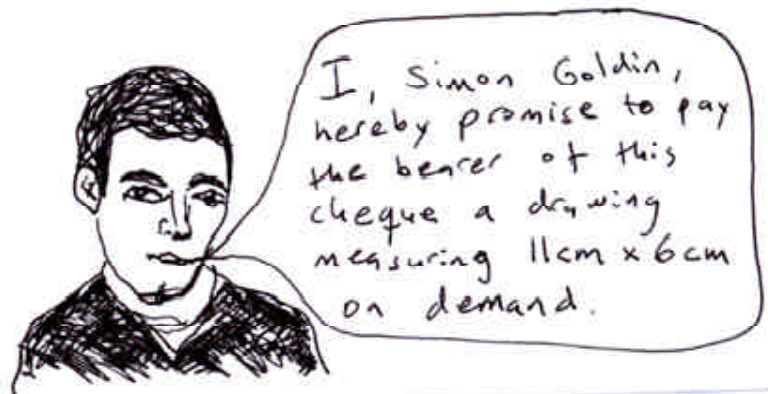 I, Simon Goldin,
hereby promise to pay
the bearer of this
cheque a drawing
measuring 11cm x 6cm
on demand.